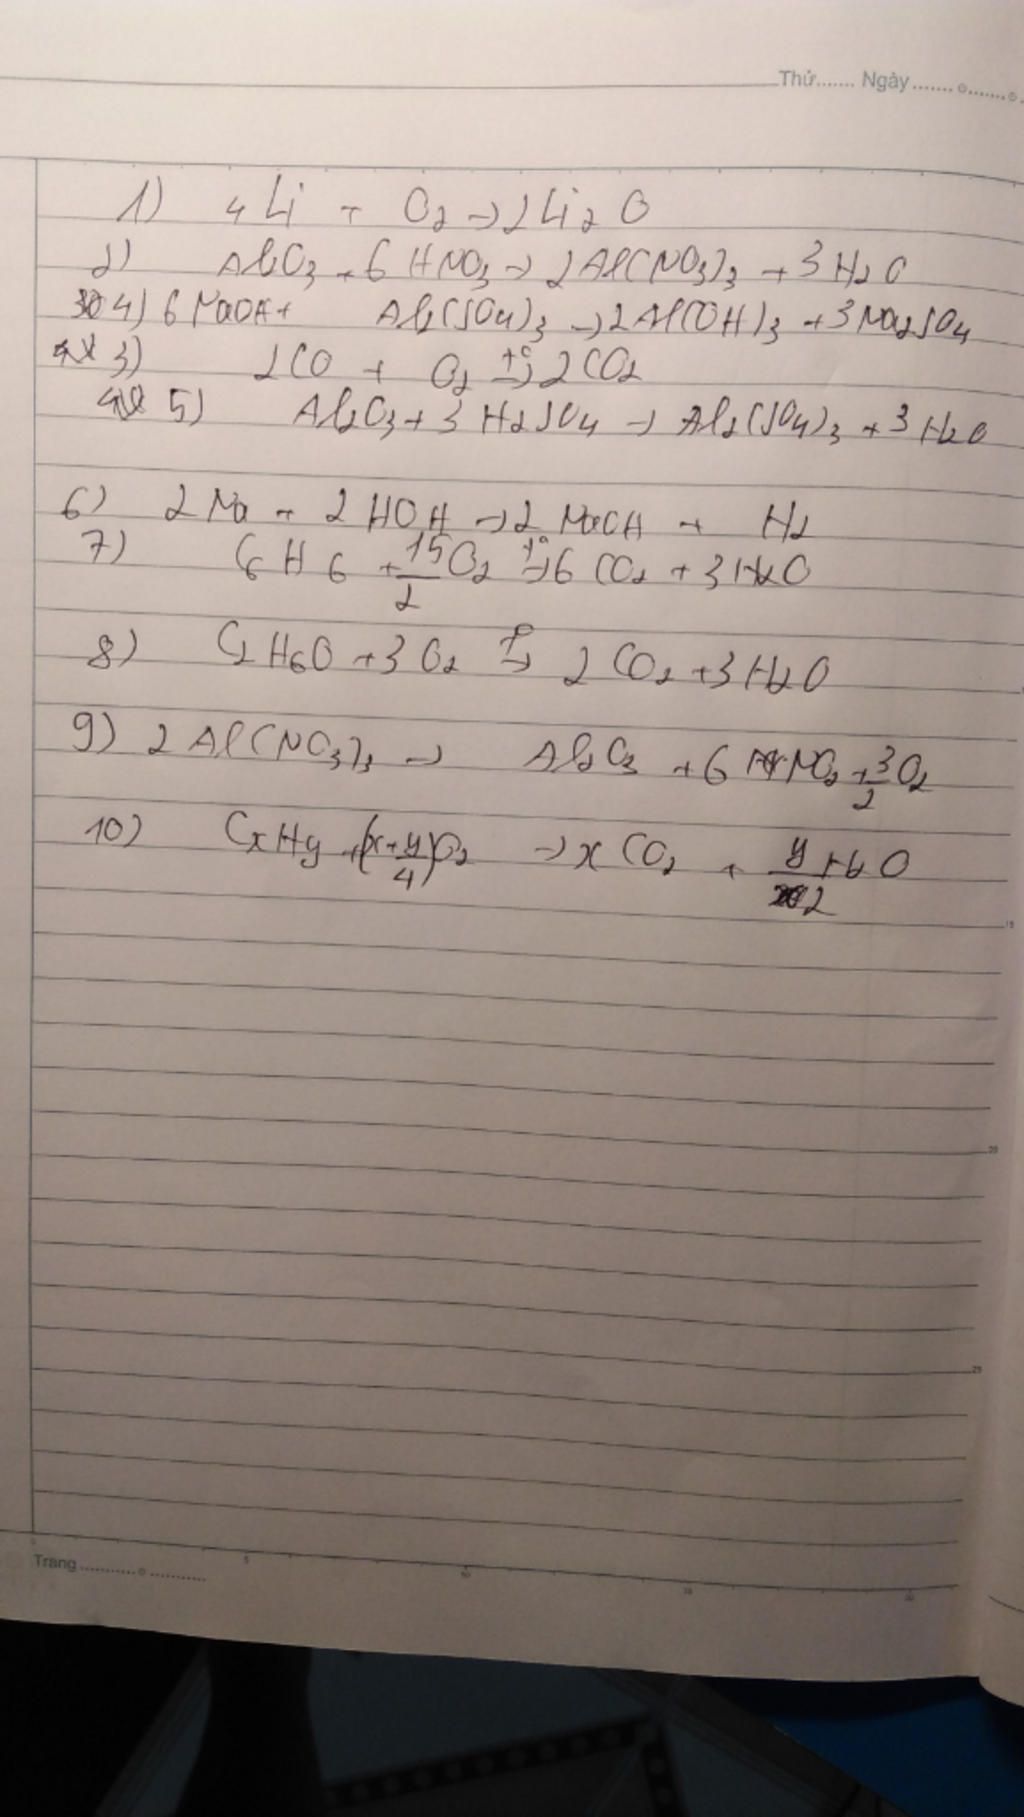 Thứ....... Ngày.......
1) 4Li + O₂ → 2Li₂O
2) Al₂O₃ + 6HNO₃ → 2Al(NO₃)₃ + 3H₂O
4) 6NaOH + Al₂(SO₄)₃ → 2Al(OH)₃ + 3Na₂SO₄
3) 2CO + O₂ t°→ 2CO₂
5) Al₂O₃ + 3H₂SO₄ → Al₂(SO₄)₃ + 3H₂O
6) 2Na + 2HOH → 2NaOH + H₂
7) C₆H₆ + 15/2 O₂ t°→ 6CO₂ + 3H₂O
8) C₂H₆O + 3O₂ t°→ 2CO₂ + 3H₂O
9) 2Al(NO₃)₃ → Al₂O₃ + 6NO₂ + 3/2 O₂
10) CxHy + (x+y/4)O₂ → xCO₂ + y/2 H₂O
Trang